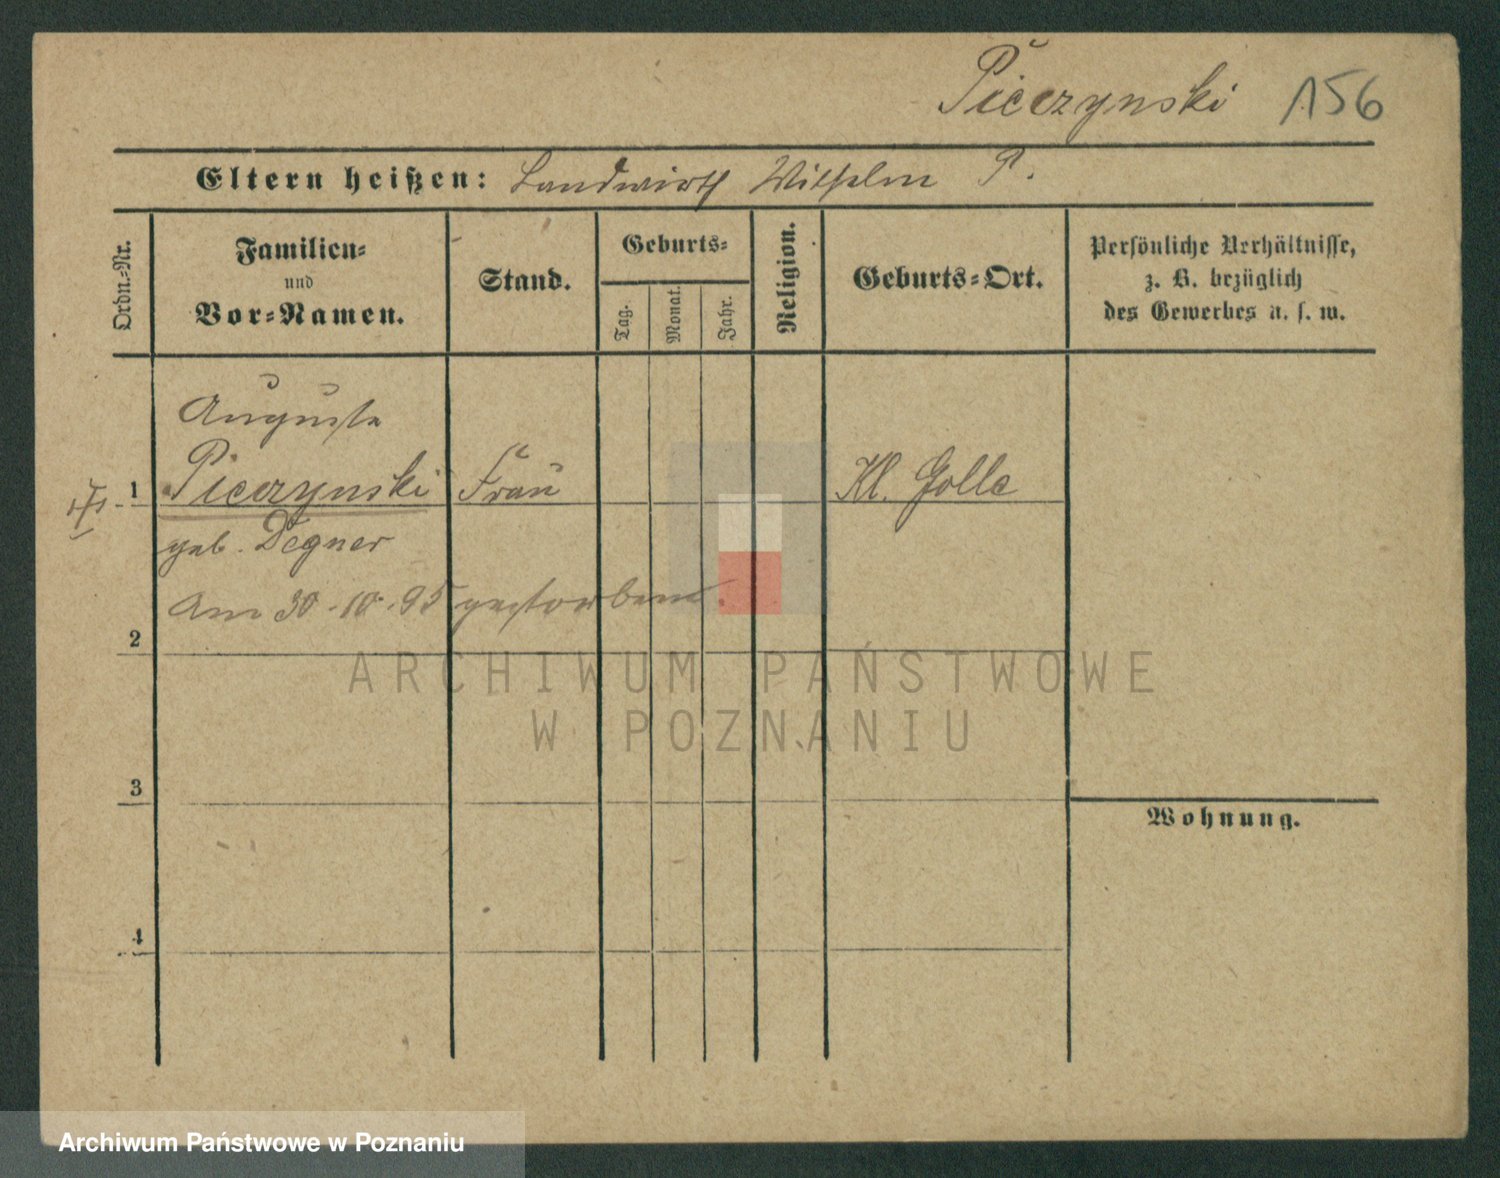 Pieczynski 156
Eltern heißen: Landwirth Wilhelm P.
Ordn.-Nr.
Familien-
und
Vor-Namen.
Stand.
Geburts-
Tag.
Monat.
Jahr.
Religion.
Geburts-Ort.
Persönliche Verhältnisse,
z. B. bezüglich
des Gewerbes u. s. w.
Auguste
1 Pieczynski Frau Kl. Golle
geb. Degner
Am 30-10-95 gestorben.
2
ARCHIWUM PAŃSTWOWE
W POZNANIU
3
Wohnung.
4
Archiwum Państwowe w Poznaniu